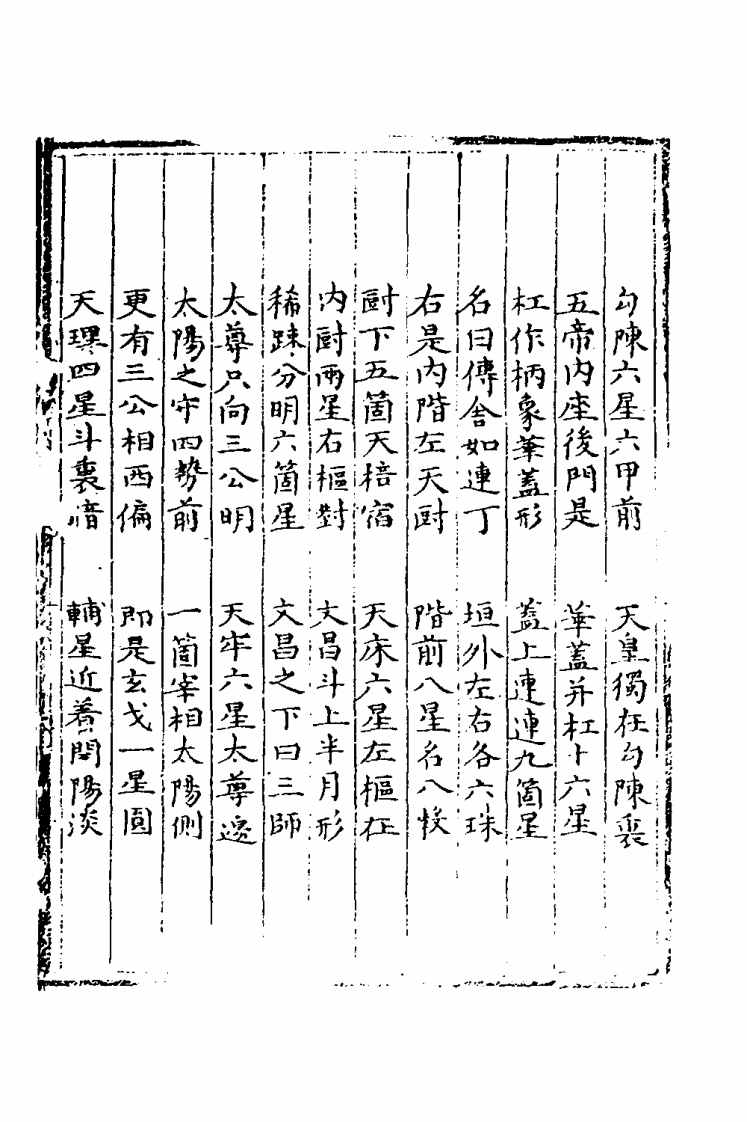 勾陳六星六甲前　天皇獨在勾陳裏
五帝内座後門是　華蓋并杠十六星
杠作柄象華蓋形　蓋上連連九箇星
名曰傳舍如連丁　垣外左右各六珠
右是内階左天厨　階前八星名八
厨下五箇天棓宿　天床六星左樞在
内厨兩星右樞對　文昌斗上半月形
稀踈分明六箇星　文昌之下曰三師
太尊只向三公明　天牢六星太尊邊
太陽之守四勢前　一箇宰相太陽側
更有三公相西偏　即是玄戈一星圓
天理四星斗裏暗　輔星近着開陽淡